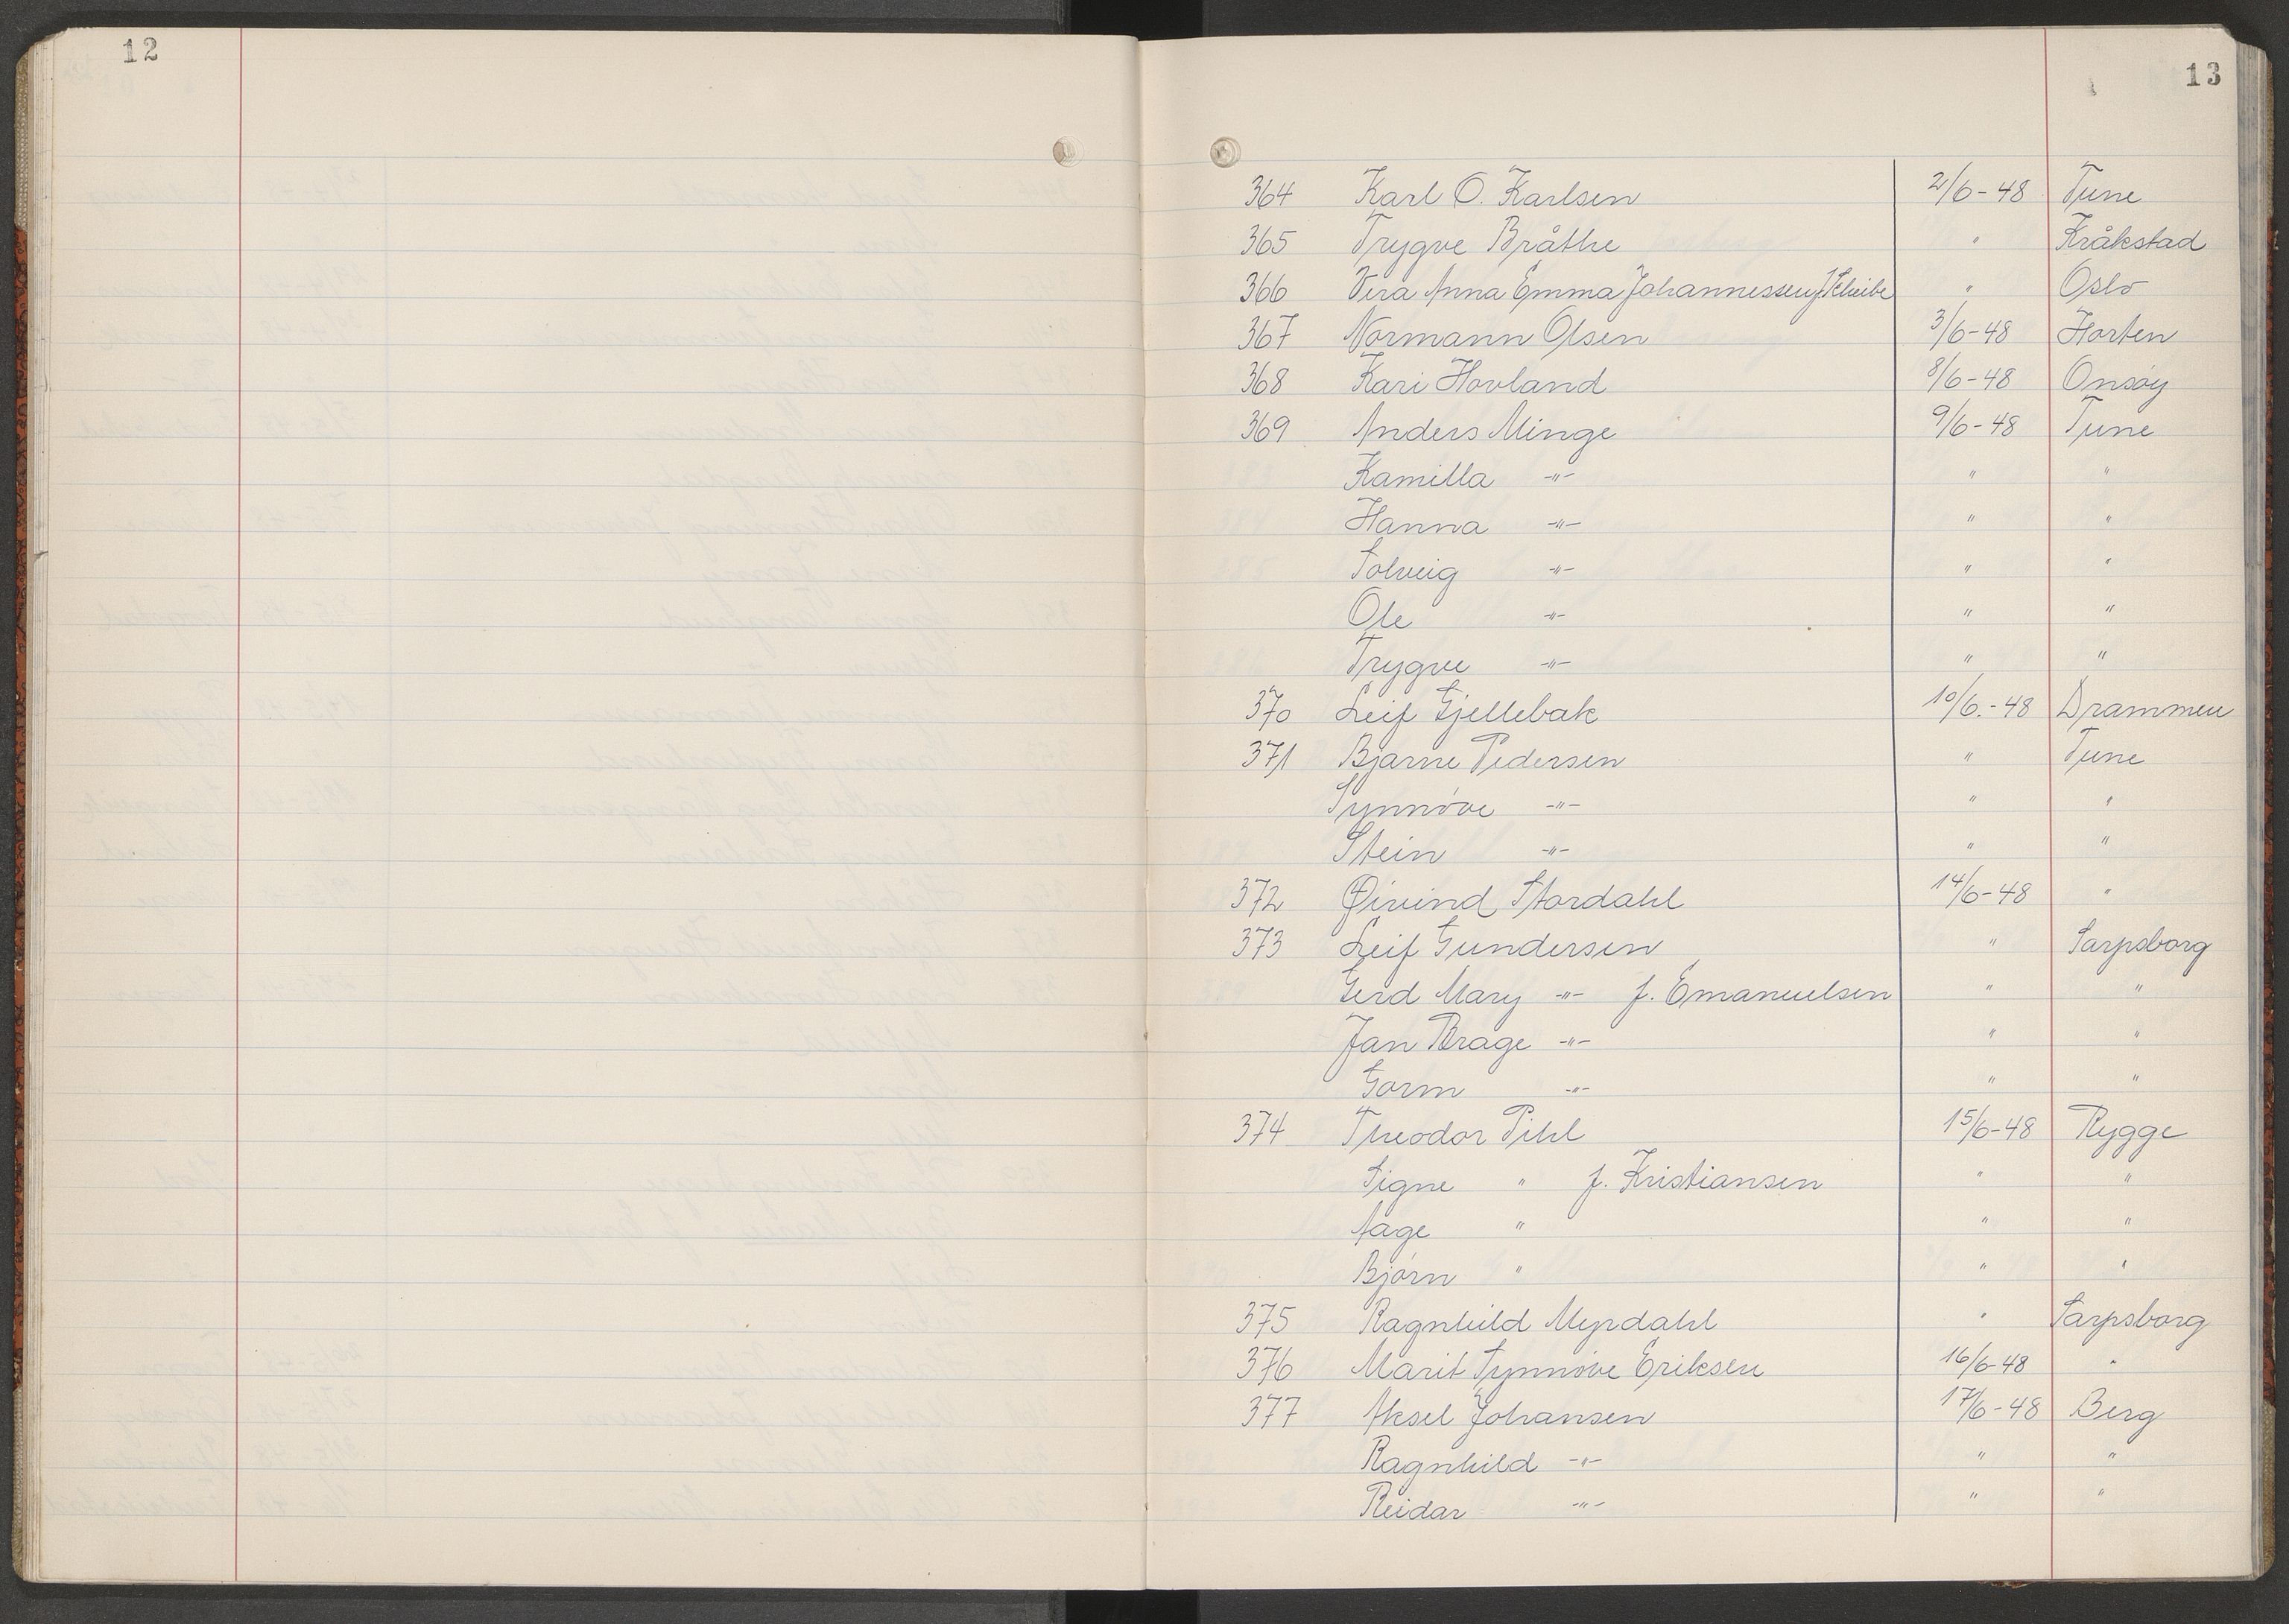 12
13
364 Karl O. Karlsen 2/6-48 Tune
365 Trygve Bråthe " Kråkstad
366 Vera Anna Emma Johannessen f. Scheibe " Oslo
367 Normann Olsen 3/6-48 Horten
368 Kari Hovland 8/6-48 Onsøy
369 Anders Minge 9/6-48 Tune
Kamilla -"- " "
Hanna -"- " "
Solveig -"- " "
Ole -"- " "
Trygve -"- " "
370 Leif Gjellebak 10/6.-48 Drammen
371 Bjarne Pedersen " Tune
Synnøve -"- " "
Stein -"- " "
372 Øivind Stordahl 14/6-48 "
373 Leif Gundersen " Sarpsborg
Gerd Mary -"- f. Emanuelsen " "
Jan Brage -"- " "
Gorm -"- " "
374 Theodor Pihl 15/6-48 Rygge
Signe " f. Kristiansen " "
Aage " " "
Bjørn " " "
375 Ragnhild Myrdahl " Sarpsborg
376 Marit Synnøve Eriksen 16/6-48 "
377 Aksel Johansen 17/6-48 Berg
Ragnhild -"- " "
Reidar -"- " "